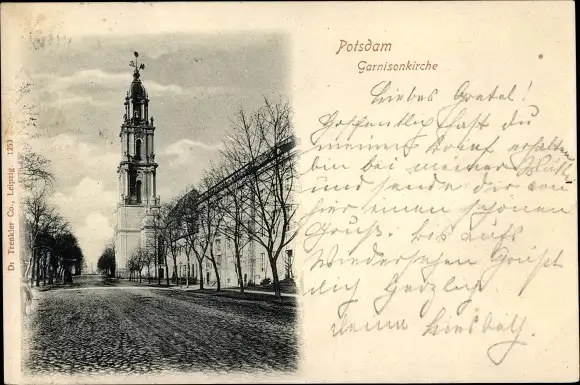 Potsdam
Garnisonkirche
Dr Trenkler Co., Leipzig 1253
Liebes Gretel!
Hoffentlich hast du
meinen Brief erhalten
bin bei meiner
und sende dir von
hier einen schönen
Gruß. Bis aufs
Wiedersehen Grüßt
dich herzlich
deine Liesbeth.